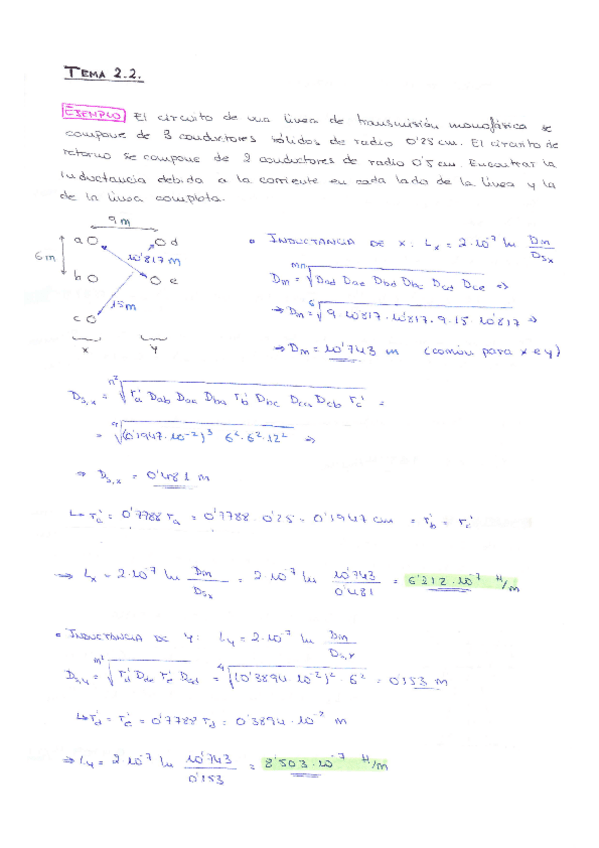 TEMA 2.2.
EJEMPLO El circuito de una línea de transmisión monofásica se
compone de 3 conductores sólidos de radio 0'25 cm. El circuito de
retorno se compone de 2 conductores de radio 0'5 cm. Encontrar la
inductancia debida a la corriente en cada lado de la línea y la
de la línea completa.
9 m
a d
6m 10'817 m
b e
15 m
c
x y
• INDUCTANCIA DE X: Lx = 2·10^-7 ln Dm/Ds,x
Dm = mn√(Dad Dae Dbd Dbe Dcd Dce) ⇒
⇒ Dm = 6√(9·10'817·10'817·9·15·10'817) ⇒
⇒ Dm = 10'743 m (común para x e y)
Ds,x = n²√(r'a Dab Dac Dba r'b Dbc Dca Dcb r'c) =
= 9√((0'1947·10^-2)^3 6^2·6^2·12^2) ⇒
⇒ Ds,x = 0'481 m
↳ r'a = 0'7788 ra = 0'7788·0'25 = 0'1947 cm = r'b = r'c
⇒ Lx = 2·10^-7 ln Dm/Ds,x = 2·10^-7 ln 10'743/0'481 = 6'212·10^-7 H/m
• INDUCTANCIA DE Y: Ly = 2·10^-7 ln Dm/Ds,y
Ds,y = m²√(r'd Dde r'e Ded) = 4√((0'3894·10^-2)^2·6^2) = 0'153 m
↳ r'd = r'e = 0'7788 rd = 0'3894·10^-2 m
⇒ Ly = 2·10^-7 ln 10'743/0'153 = 8'503·10^-7 H/m